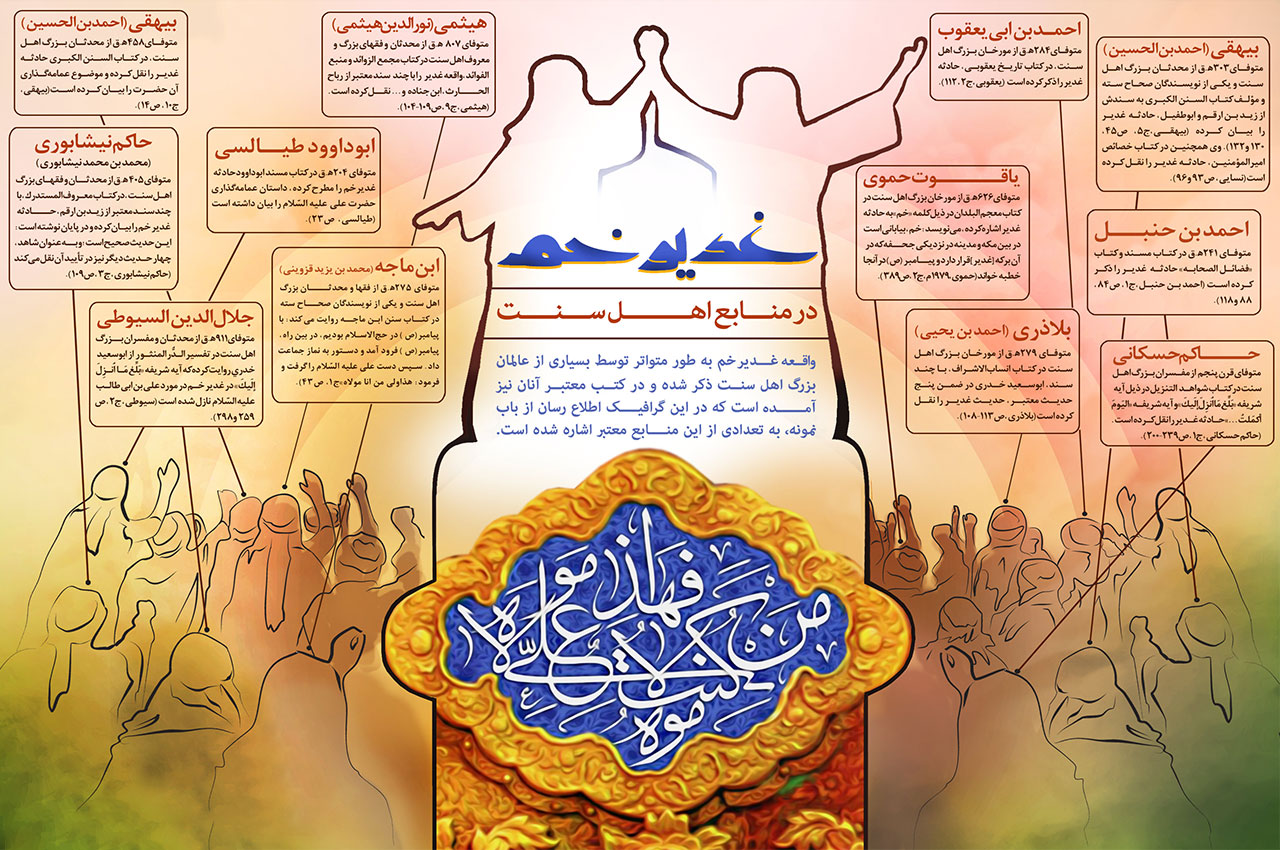 غدیر خم
در منابع اهل سنت
واقعه غدیر خم به طور متواتر توسط بسیاری از عالمان
بزرگ اهل سنت ذکر شده و در کتب معتبر آنان نیز
آمـده است که در این گرافیک اطلاع رسان از باب
نمونه، به تعدادی از این منابع معتبر اشاره شده است.
من کنت مولاه فهذا علی مولاه
بیهقی (احمدبن‌الحسین)
متوفای۳۰۳ه‍.ق از محدثان بزرگ اهل
سنت و یکی از نویسندگان صحاح سته
و مؤلف کتاب السنن الکبری به سندش
از زید بن ارقم و ابوطفیل، حادثه غدیر
را بیان کرده (بیهقی،ج۵، ص۴۵،
۱۳۰ و۱۳۲). وی همچنین در کتاب خصائص
امیرالمؤمنین، حادثه غدیر را نقل کرده
است(نسایی، ص۹۳ و۹۶).
احمدبن ابی یعقوب
متوفای۲۸۴ه‍.ق از مورخان بزرگ اهل
سنت، در کتاب تاریخ یعقوبی، حادثه
غدیر را ذکر کرده است (یعقوبی،ج۲،۱۱۲).
یاقوت حموی
متوفای۶۲۶ه‍.ق از مورخان بزرگ اهل سنت در
کتاب معجم البلدان در ذیل کلمه «خم» به حادثه
غدیر اشاره کرده، می‌نویسد: خم، بیابانی است
در بین مکه و مدینه در نزدیکی جحفه که در
آن برکه (غدیر)قرار دارد و پیامبر (ص) در آنجا
خطبه خواند(حموی،۱۹۷۹م،ج۲،ص۳۸۹).
احمدبن حنبل
متوفای ۲۴۱ ه‍.ق در کتاب مسند و کتاب
«فضائل الصحابه» حادثه غدیر را ذکر
کرده است (احمد بن حنبل،ج۱، ص۸۴،
۸۸ و۱۱۸).
بلاذری (احمدبن یحیی)
متوفای ۲۷۹ ه‍.ق از مورخان بزرگ اهل
سنت در کتاب انساب‌الاشراف، با چند
سند، ابوسعید خدری در ضمن پنج
حدیث معتبر، حدیث غدیر را نقل
کرده است(بلاذری،ص۱۱۳-۱۰۸).
حاکم حسکانی
متوفای قرن پنجم از مفسران بزرگ اهل
سنت در کتاب شواهد التنزیل در ذیل آیه
شریفه «بَلِّغ مَا أُنزِلَ إِلَیكَ» و آیه شریفه «الیَومَ
أکمَلتُ...»حادثه غدیر را نقل کرده است.
(حاکم حسکانی،ج۱،ص۲۳۹-۲۰۰).
هیثمی(نورالدین‌هیثمی)
متوفای ۸۰۷ ه‍.ق از محدثان و فقهای بزرگ و
معروف اهل سنت در کتاب مجمع الزوائد و منبع
الفوائد،واقعه غدیر را با چند سند معتبر از ریاح
الحارث، ابن جناده و... نقل کرده است.
(هیثمی،ج۹،ص۱۰۹-۱۰۴).
بیهقی (احمدبن‌الحسین)
متوفای۴۵۸ه‍.ق از محدثان بزرگ اهل
سنت، در کتاب السنن الکبری حادثه
غدیر را نقل کرده و موضوع عمامه‌گذاری
آن حضرت را بیان کرده است(بیهقی،
ج۱۰، ص۱۴).
ابوداوود طیالسی
متوفای ۲۰۴ ه‍.ق در کتاب مسند ابوداوودحادثه
غدیر خم را مطرح کرده، داستان عمامه‌گذاری
حضرت علی علیه السّلام را بیان داشته است
(طیالسی، ص۲۳).
حاکم نیشابوری
(محمدبن محمد نیشابوری)
متوفای۴۰۵ه‍.ق از محدثان و فقهای بزرگ
اهل سنت، در کتاب معروف المستدرک، با
چند سند معتبر از زید بن ارقم، حـادثه
غدیر خم را بیان کرده و در پایان نوشته است:
این حدیث صحیح است؛ و به عنوان شاهد،
چهار حدیث دیگر نیز در تأیید آن نقل می‌کند
(حاکم نیشابوری،ج۳،ص۱۰۹).
ابن ماجه (محمدبن یزید قزوینی)
متوفای ۲۷۵ ه‍.ق از فقها و محدثان بزرگ
اهل سنت و یکی از نویسندگان صحـاح سته
در کتاب سنن ابن ماجـه روایت می‌کند: با
پیامبر(ص) در حج‌الاسلام بودیم، در بین راه،
پیامبر(ص) فرود آمد و دستور به نماز جماعت
داد. سپس دست علی علیه السلام را گرفت و
فرمود: هذاولی من انا مولاه»ج۱، ص۴۳).
جلال‌الدین السیوطی
متوفای۹۱۱ه‍.ق از محدثان و مفسران بزرگ
اهل سنت در تفسیر الدُّر المنثور از ابوسعید
خدری روایت کرده که آیه شریفه «بَلِّغ مَا أُنزِلَ
إِلَیكَ» در غدیر خم در مورد علی بن ابی طالب
علیه السّلام نازل شده است(سیوطی،ج۲، ص
۲۵۹ و۲۹۸).